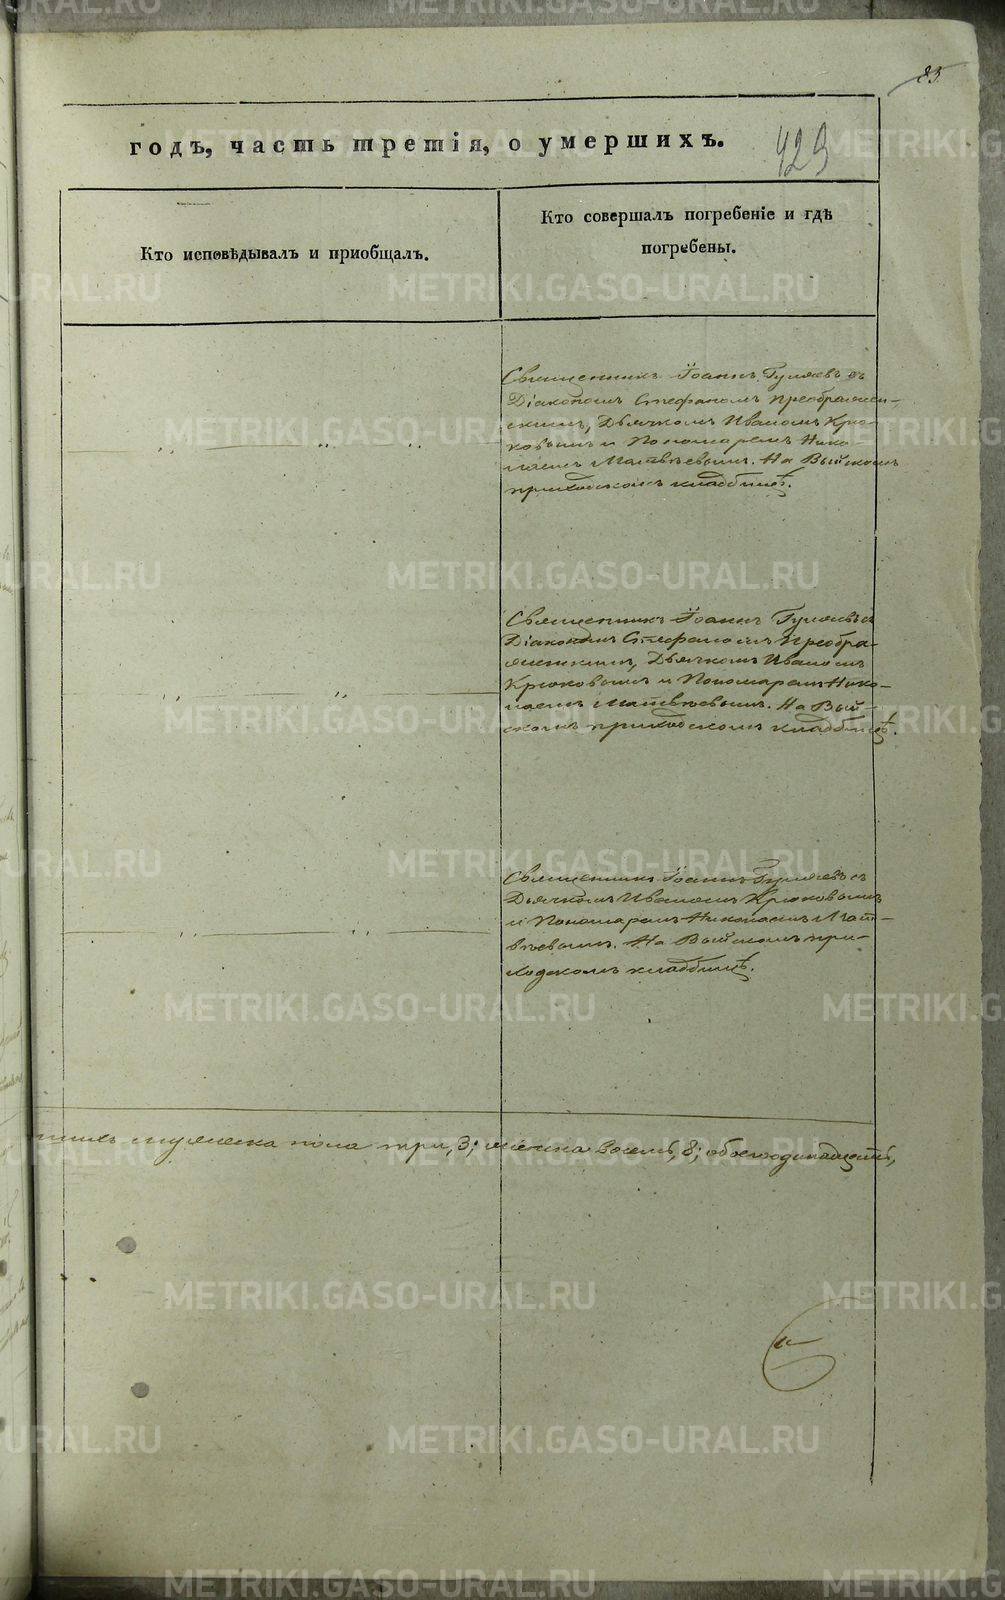 83
годъ, часть третія, о умершихъ.
429
Кто исповѣдывалъ и пріобщалъ.
Кто совершалъ погребеніе и гдѣ
погребены.
Священникъ Іоаннъ Гуляевъ съ
Діакономъ Стефаномъ Преображен-
скимъ, Дьячкомъ Иваномъ Крю-
ковымъ и Пономаремъ Нико-
лаемъ Матвѣевымъ. На Выйскомъ
приходскомъ кладбищѣ.
Священникъ Іоаннъ Гуляевъ съ
Діакономъ Стефаномъ Преобра-
женскимъ, Дьячкомъ Иваномъ
Крюковымъ и Пономаремъ Нико-
лаемъ Матвѣевымъ. На Вый-
скомъ приходскомъ кладбищѣ.
Священникъ Іоаннъ Гуляевъ съ
Дьячкомъ Иваномъ Крюковымъ
и Пономаремъ Николаемъ Мат-
вѣевымъ. На Выйскомъ при-
ходскомъ кладбищѣ.
мужеска пола три, 3; женска восемь, 8; обоего одинадцать,
METRIKI.GASO-URAL.RU